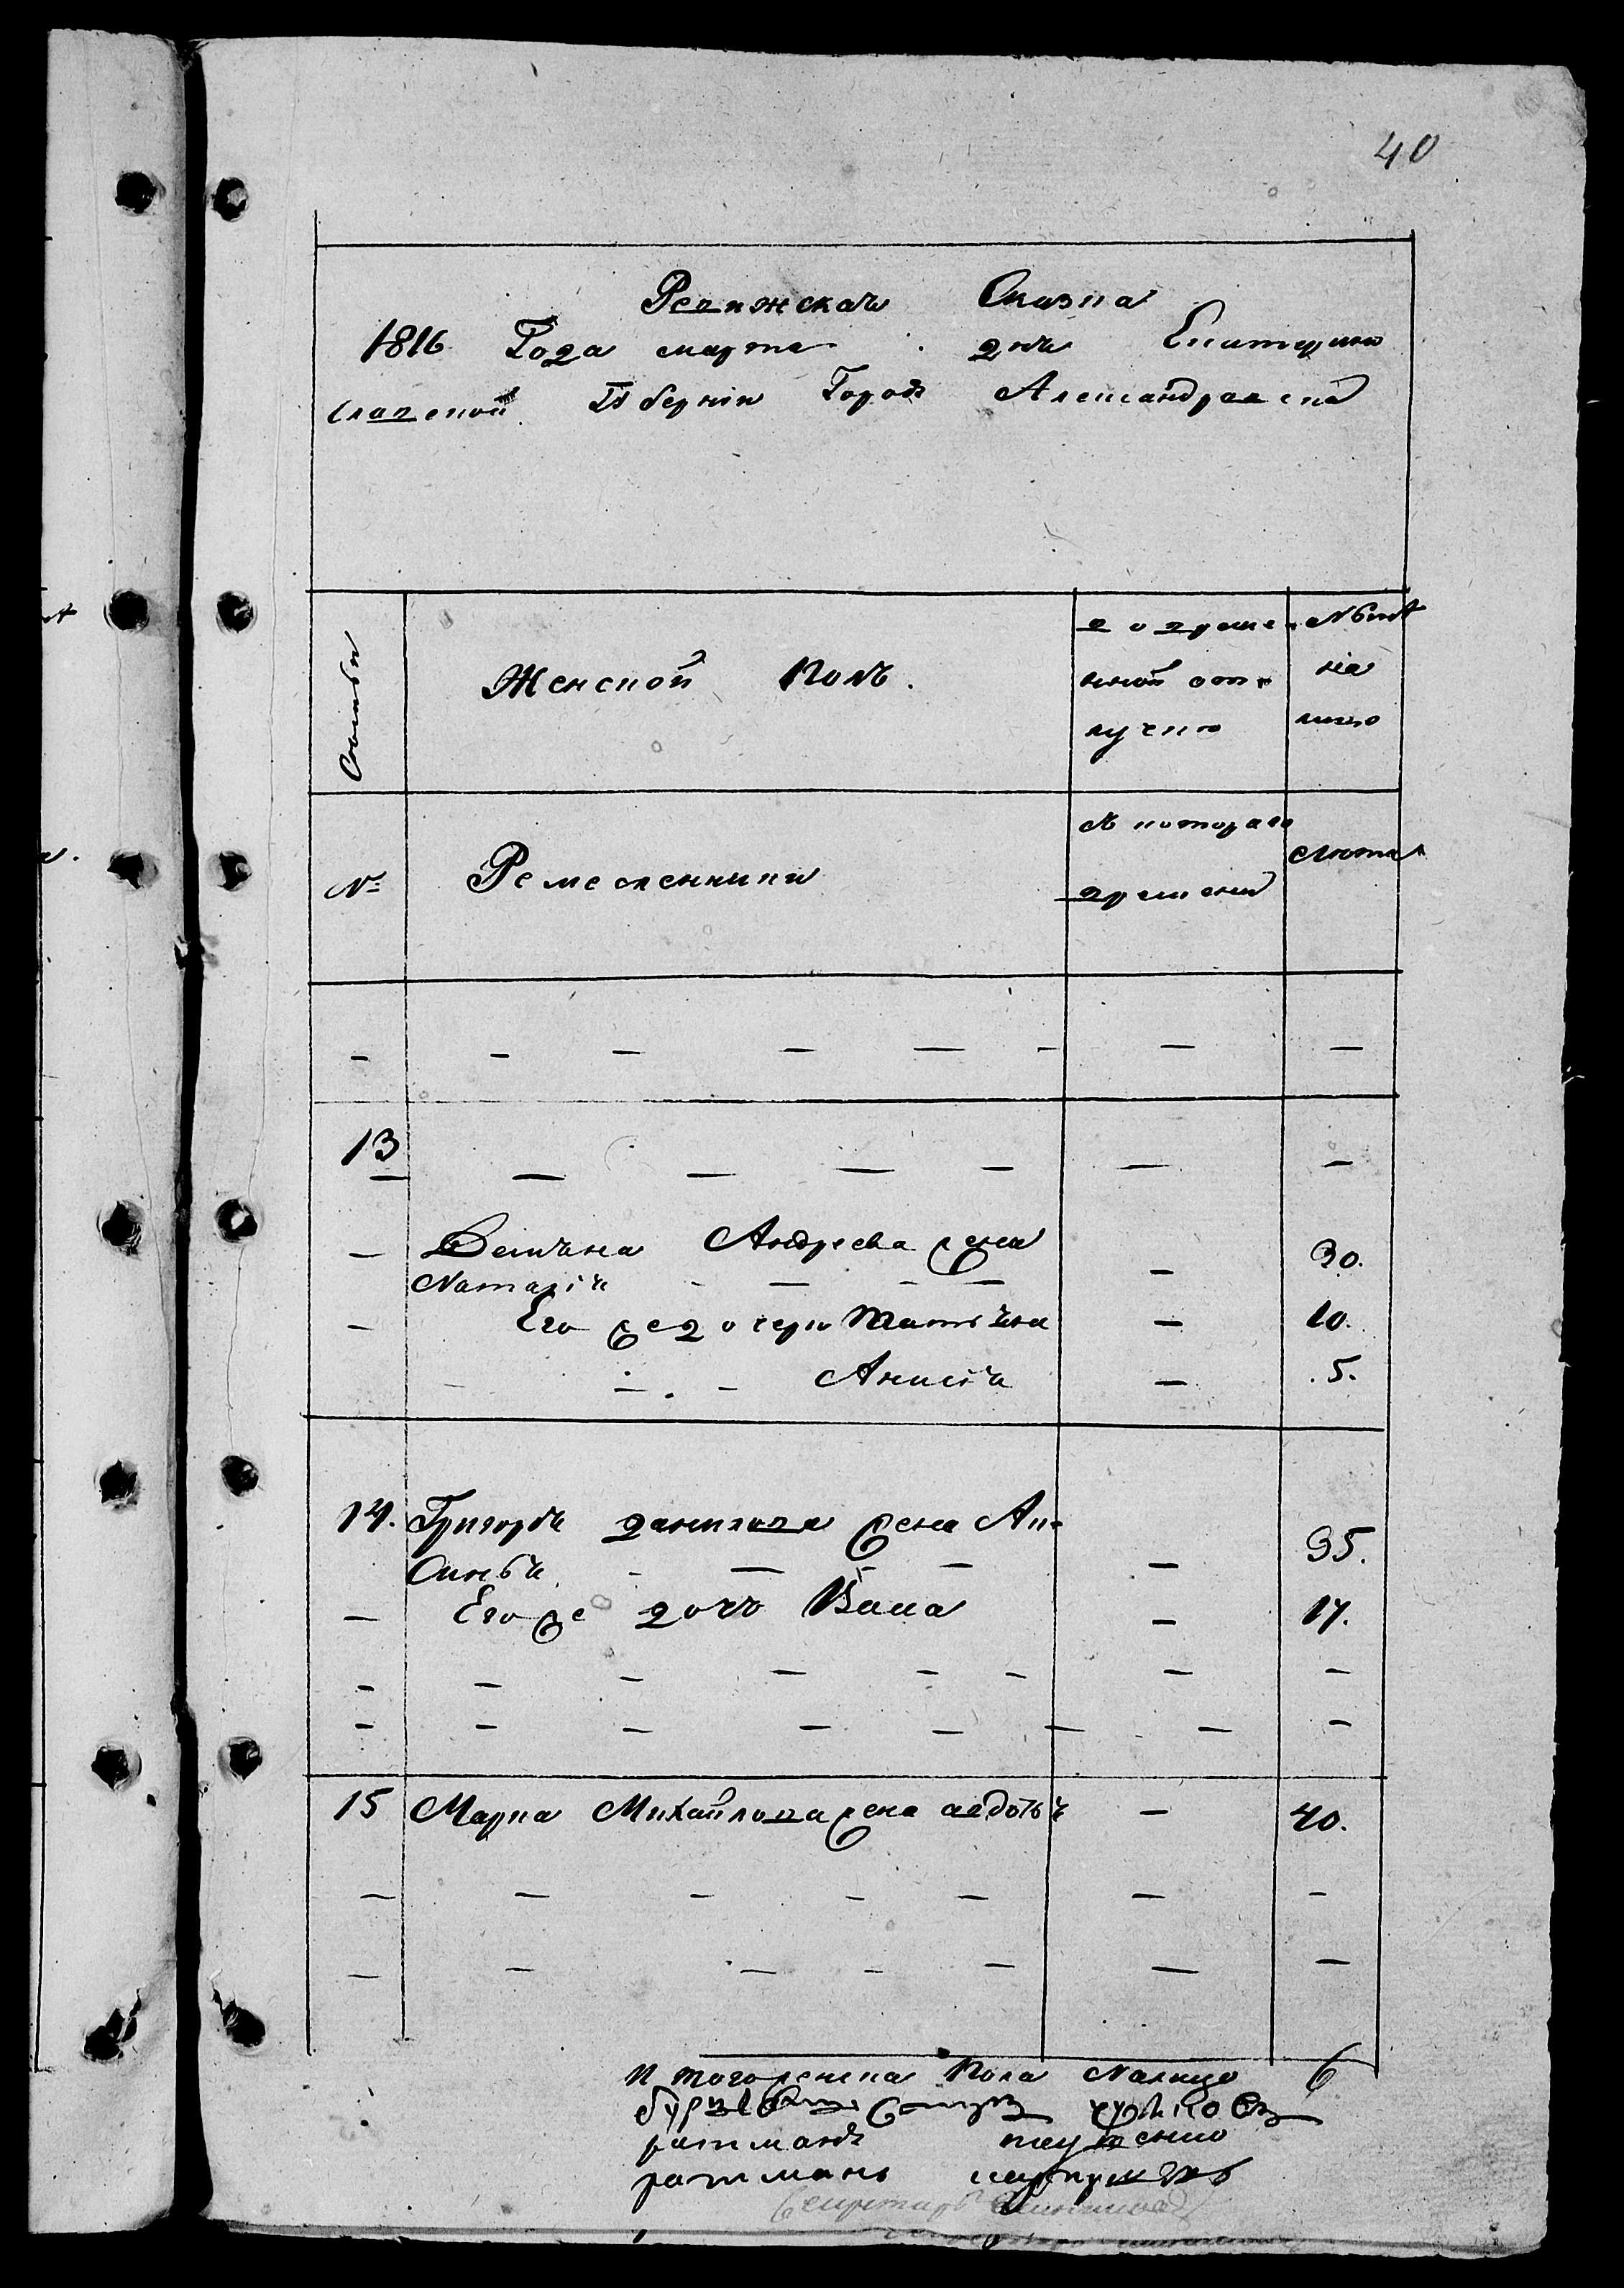 40
Ревижская Сказка
1816 Года марта дня Екатерино
славской Губернии Город Александровска
Семьи
Женской Полъ.
во време
нной от
лучке
Ныне
на
лицо
№
Ремесленники
С которого
времени
Лета
- - - - - - - -
13
- - - - - -
- Демьяна Андреева жена - 30.
Наталiя - - - -
- Его же дочери Татьяна - 10.
- - - Анисiя - 5.
14. Григорья Данилова жена Ак-
синья - - - - - 35.
- Его же дочь Васса - 17.
- - - - - - - -
- - - - - - - -
15 Марка Михайлова жена авдотья - 40.
- - - - - - -
- - - - - - -
И того женска Пола Налицо 6
ратманъ
ратманъ
Секретарь